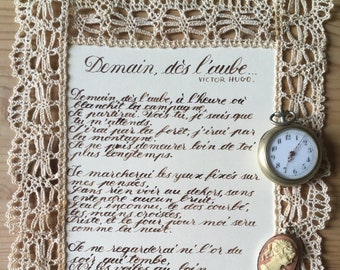 Demain, dès l'aube...
VICTOR HUGO.
Demain, dès l'aube, à l'heure où
blanchit la campagne,
Je partirai. Vois-tu, je sais que
tu m'attends.
J'irai par la forêt, j'irai par
la montagne.
Je ne puis demeurer loin de toi
plus longtemps.
Je marcherai les yeux fixés sur
mes pensées,
Sans rien voir au dehors, sans
entendre aucun bruit,
Seul, inconnu, le dos courbé,
les mains croisées,
Triste, et le jour pour moi sera
comme la nuit.
Je ne regarderai ni l'or du
soir qui tombe,
Ni les voiles au loin